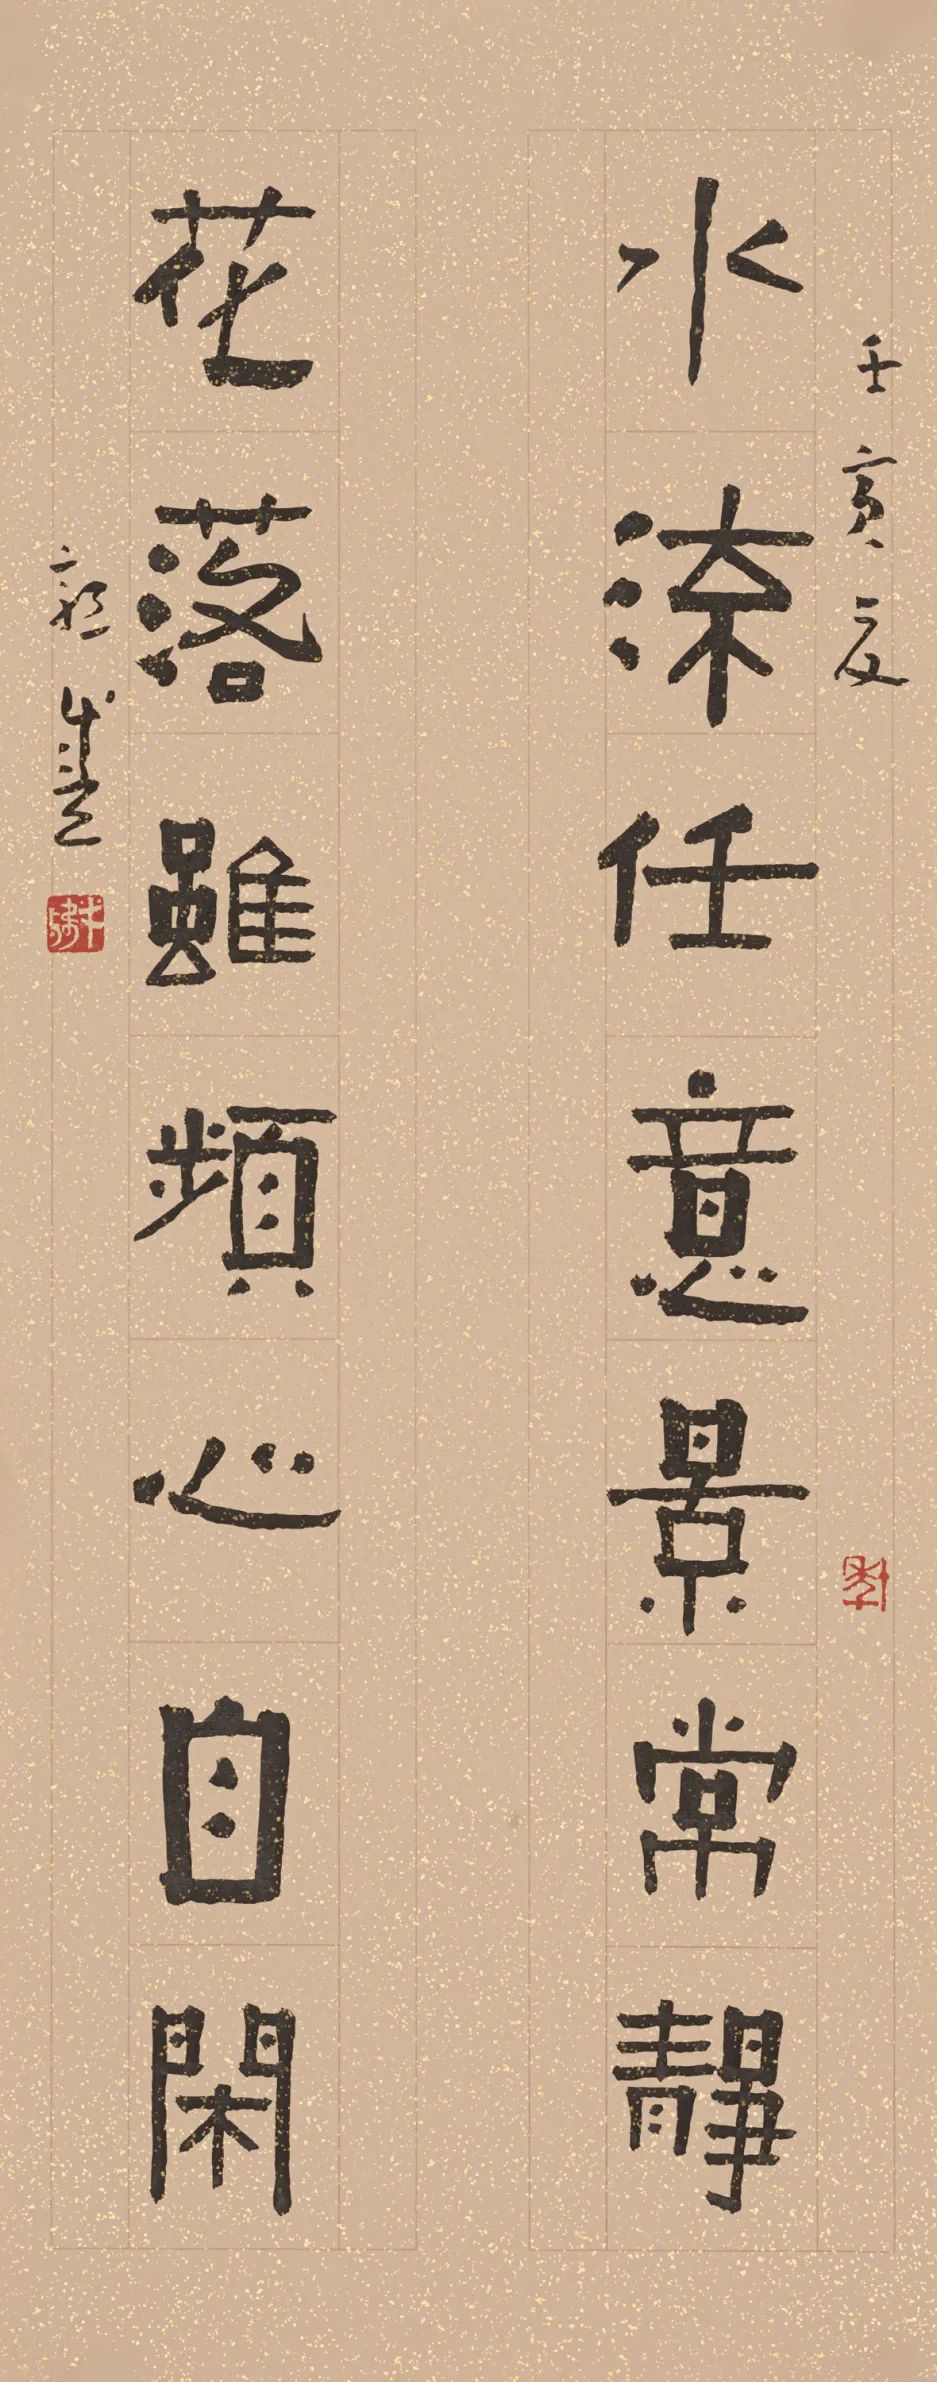 壬寅夏
水流任意景常靜
花落雖頻心自閑